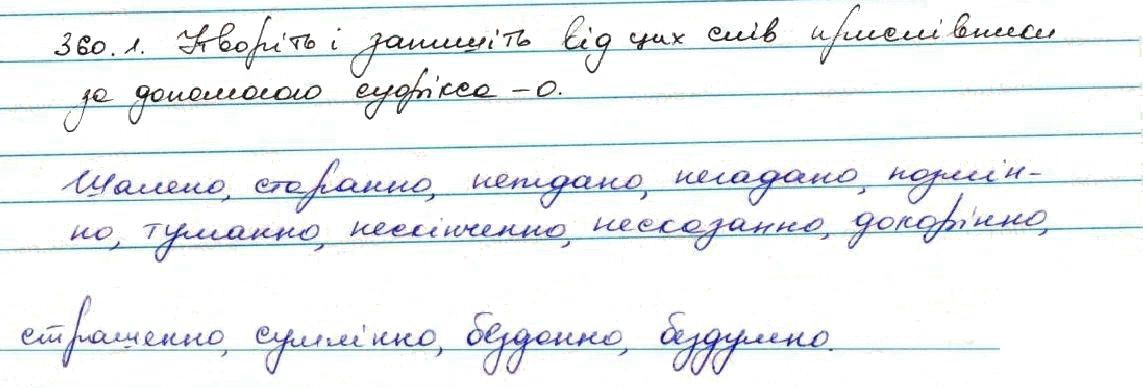 360. 1. Утворіть і запишіть від цих слів прислівники
за допомогою суфікса -о.
Шалено, старанно, неждано, негадано, позмін-
но, туманно, нескінченно, несказанно, докорінно,
страшенно, сумлінно, бездонно, бездумно.